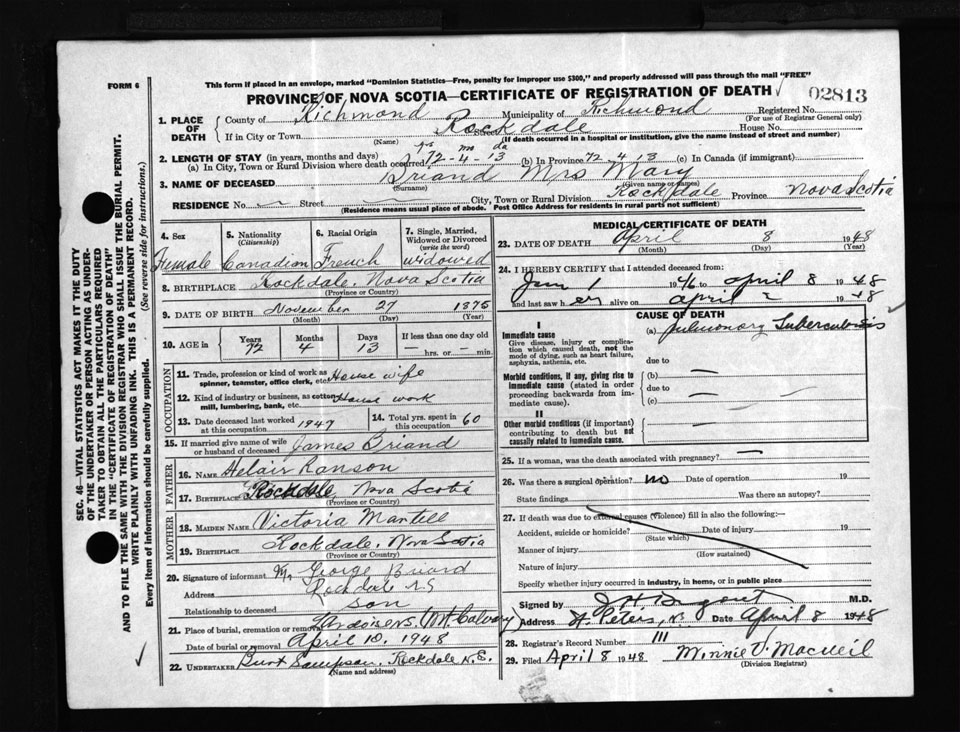 FORM 6
This form if placed in an envelope, marked "Dominion Statistics—Free, penalty for improper use $300," and properly addressed will pass through the mail "FREE"
PROVINCE OF NOVA SCOTIA—CERTIFICATE OF REGISTRATION OF DEATH
02813
1. PLACE OF DEATH
County of Richmond Municipality of Richmond Registered No.
(For use of Registrar General only)
If in City or Town Rockdale Street House No.
(Name) (If death occurred in a hospital or institution, give the name instead of street and number)
yrs mo da
2. LENGTH OF STAY (in years, months and days)
(a) In City, Town or Rural Division where death occurred 72-4-13 (b) In Province 72 4 13 (c) In Canada (if immigrant)
3. NAME OF DECEASED Briand Mrs Mary
(Surname) (Given name or names)
RESIDENCE No. Street City, Town or Rural Division Rockdale Province Nova Scotia
(Residence means usual place of abode. Post Office Address for residents in rural parts not sufficient)
4. Sex
Female
5. Nationality (Citizenship)
Canadian
6. Racial Origin
French
7. Single, Married, Widowed or Divorced (write the word)
widowed
8. BIRTHPLACE Rockdale, Nova Scotia
(Province or Country)
9. DATE OF BIRTH November 27 1875
(Month) (Day) (Year)
10. AGE in Years Months Days If less than one day old
72 4 13 — hrs. or — min.
OCCUPATION
11. Trade, profession or kind of work as spinner, teamster, office clerk, etc. House wife
12. Kind of industry or business, as cotton mill, lumbering, bank, etc. House work
13. Date deceased last worked at this occupation 1947
14. Total yrs. spent in this occupation 60
15. If married give name of wife or husband of deceased James Briand
FATHER
16. NAME Helair Ranson
17. BIRTHPLACE Rockdale Nova Scotia
(Province or Country)
MOTHER
18. MAIDEN NAME Victoria Martell
19. BIRTHPLACE Rockdale, Nova Scotia
(Province or Country)
20. Signature of informant Mr George Briard
Address Rockdale N.S
Relationship to deceased Son
21. Place of burial, cremation or removal (Mt Calvary)
Date of burial or removal April 10, 1948
22. UNDERTAKER Sampson. Rockdale N.S.
(Name and address)
MEDICAL CERTIFICATE OF DEATH
23. DATE OF DEATH April 8 1948
(Month) (Day) (Year)
24. I HEREBY CERTIFY that I attended deceased from:
Jan 1 1946 to April 8 1948
and last saw her alive on april 2 1948
CAUSE OF DEATH
I
Immediate cause
Give disease, injury or complication which caused death, not the mode of dying, such as heart failure, asphyxia, asthenia, etc.
(a) Pulmonary Tuberculosis
due to
Morbid conditions, if any, giving rise to immediate cause (stated in order proceeding backwards from immediate cause).
(b) —
due to
(c) —
II
Other morbid conditions (if important) contributing to death but not causally related to immediate cause.
25. If a woman, was the death associated with pregnancy? —
26. Was there a surgical operation? no Date of operation 19
State findings Was there an autopsy?
27. If death was due to external causes (violence) fill in also the following:—
Accident, suicide or homicide? Date of injury 19
(State which)
Manner of injury
(How sustained)
Nature of injury
Specify whether injury occurred in industry, in home, or in public place
Signed by M.D.
Address St. Peters, N Date April 8 1948
28. Registrar's Record Number 111
29. Filed April 8 1948 Minnie D. MacNeil
(Division Registrar)
SEC. 46—VITAL STATISTICS ACT MAKES IT THE DUTY
OF THE UNDERTAKER OR PERSON ACTING AS UNDERTAKER TO OBTAIN ALL THE PARTICULARS REQUIRED
IN THE "CERTIFICATE OF REGISTRATION OF DEATH"
AND TO FILE THE SAME WITH THE DIVISION REGISTRAR WHO SHALL ISSUE THE BURIAL PERMIT.
WRITE PLAINLY WITH UNFADING INK. THIS IS A PERMANENT RECORD.
Every item of information should be carefully supplied. (See reverse side for instructions.)